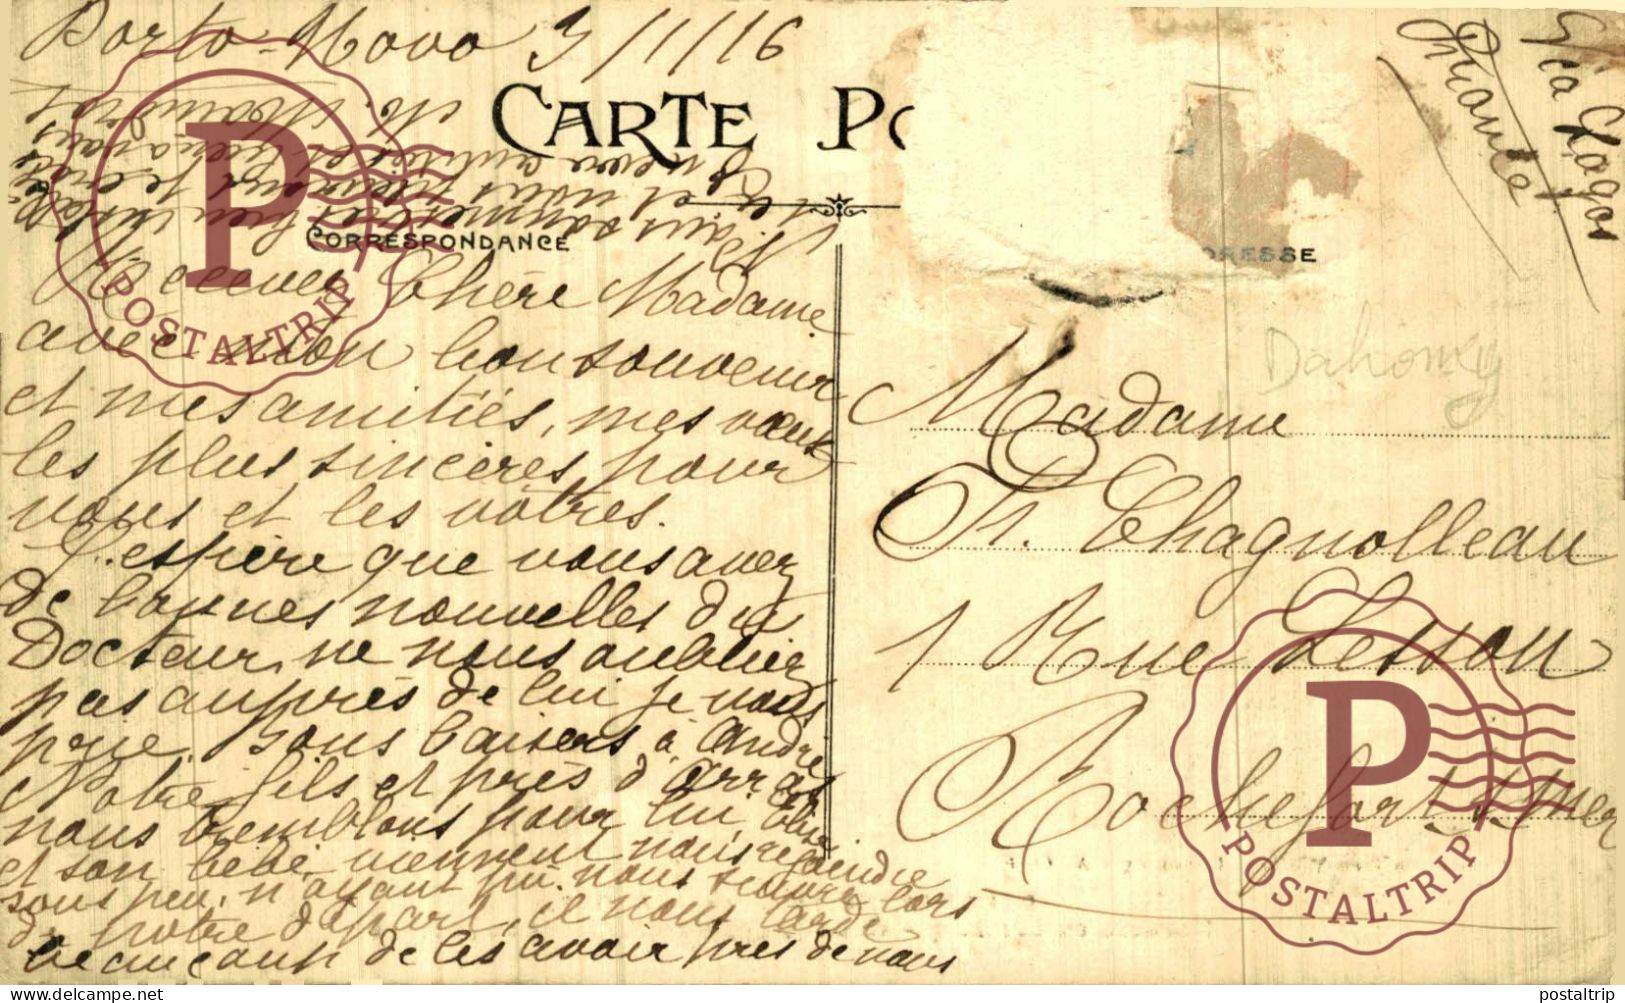 Porto-Novo 3/1/16
CARTE PO
CORRESPONDANCE
Recevez Chère Madame
avec mon bon souvenir
et mes amitiés, mes vœux
les plus sincères pour
vous et les vôtres.
J'espère que vous avez
de bonnes nouvelles du
Docteur, ne nous oubliez
pas auprès de lui je vous
prie. Bons baisers à André
Notre fils est près d'Arras
nous tremblons pour lui,
et son bébé viennent nous rejoindre
sous peu, n'ayant pu nous suivre lors
de notre départ, il nous tarde
beaucoup de les avoir près de nous
Nous sommes
et nous
Via Lagos
DRESSE
Dahomey
Madame
Fr. Chagnolleau
1 Rue Lesson
Rochefort s. mer
P
POSTALTRIP
P
POSTALTRIP
postaltrip